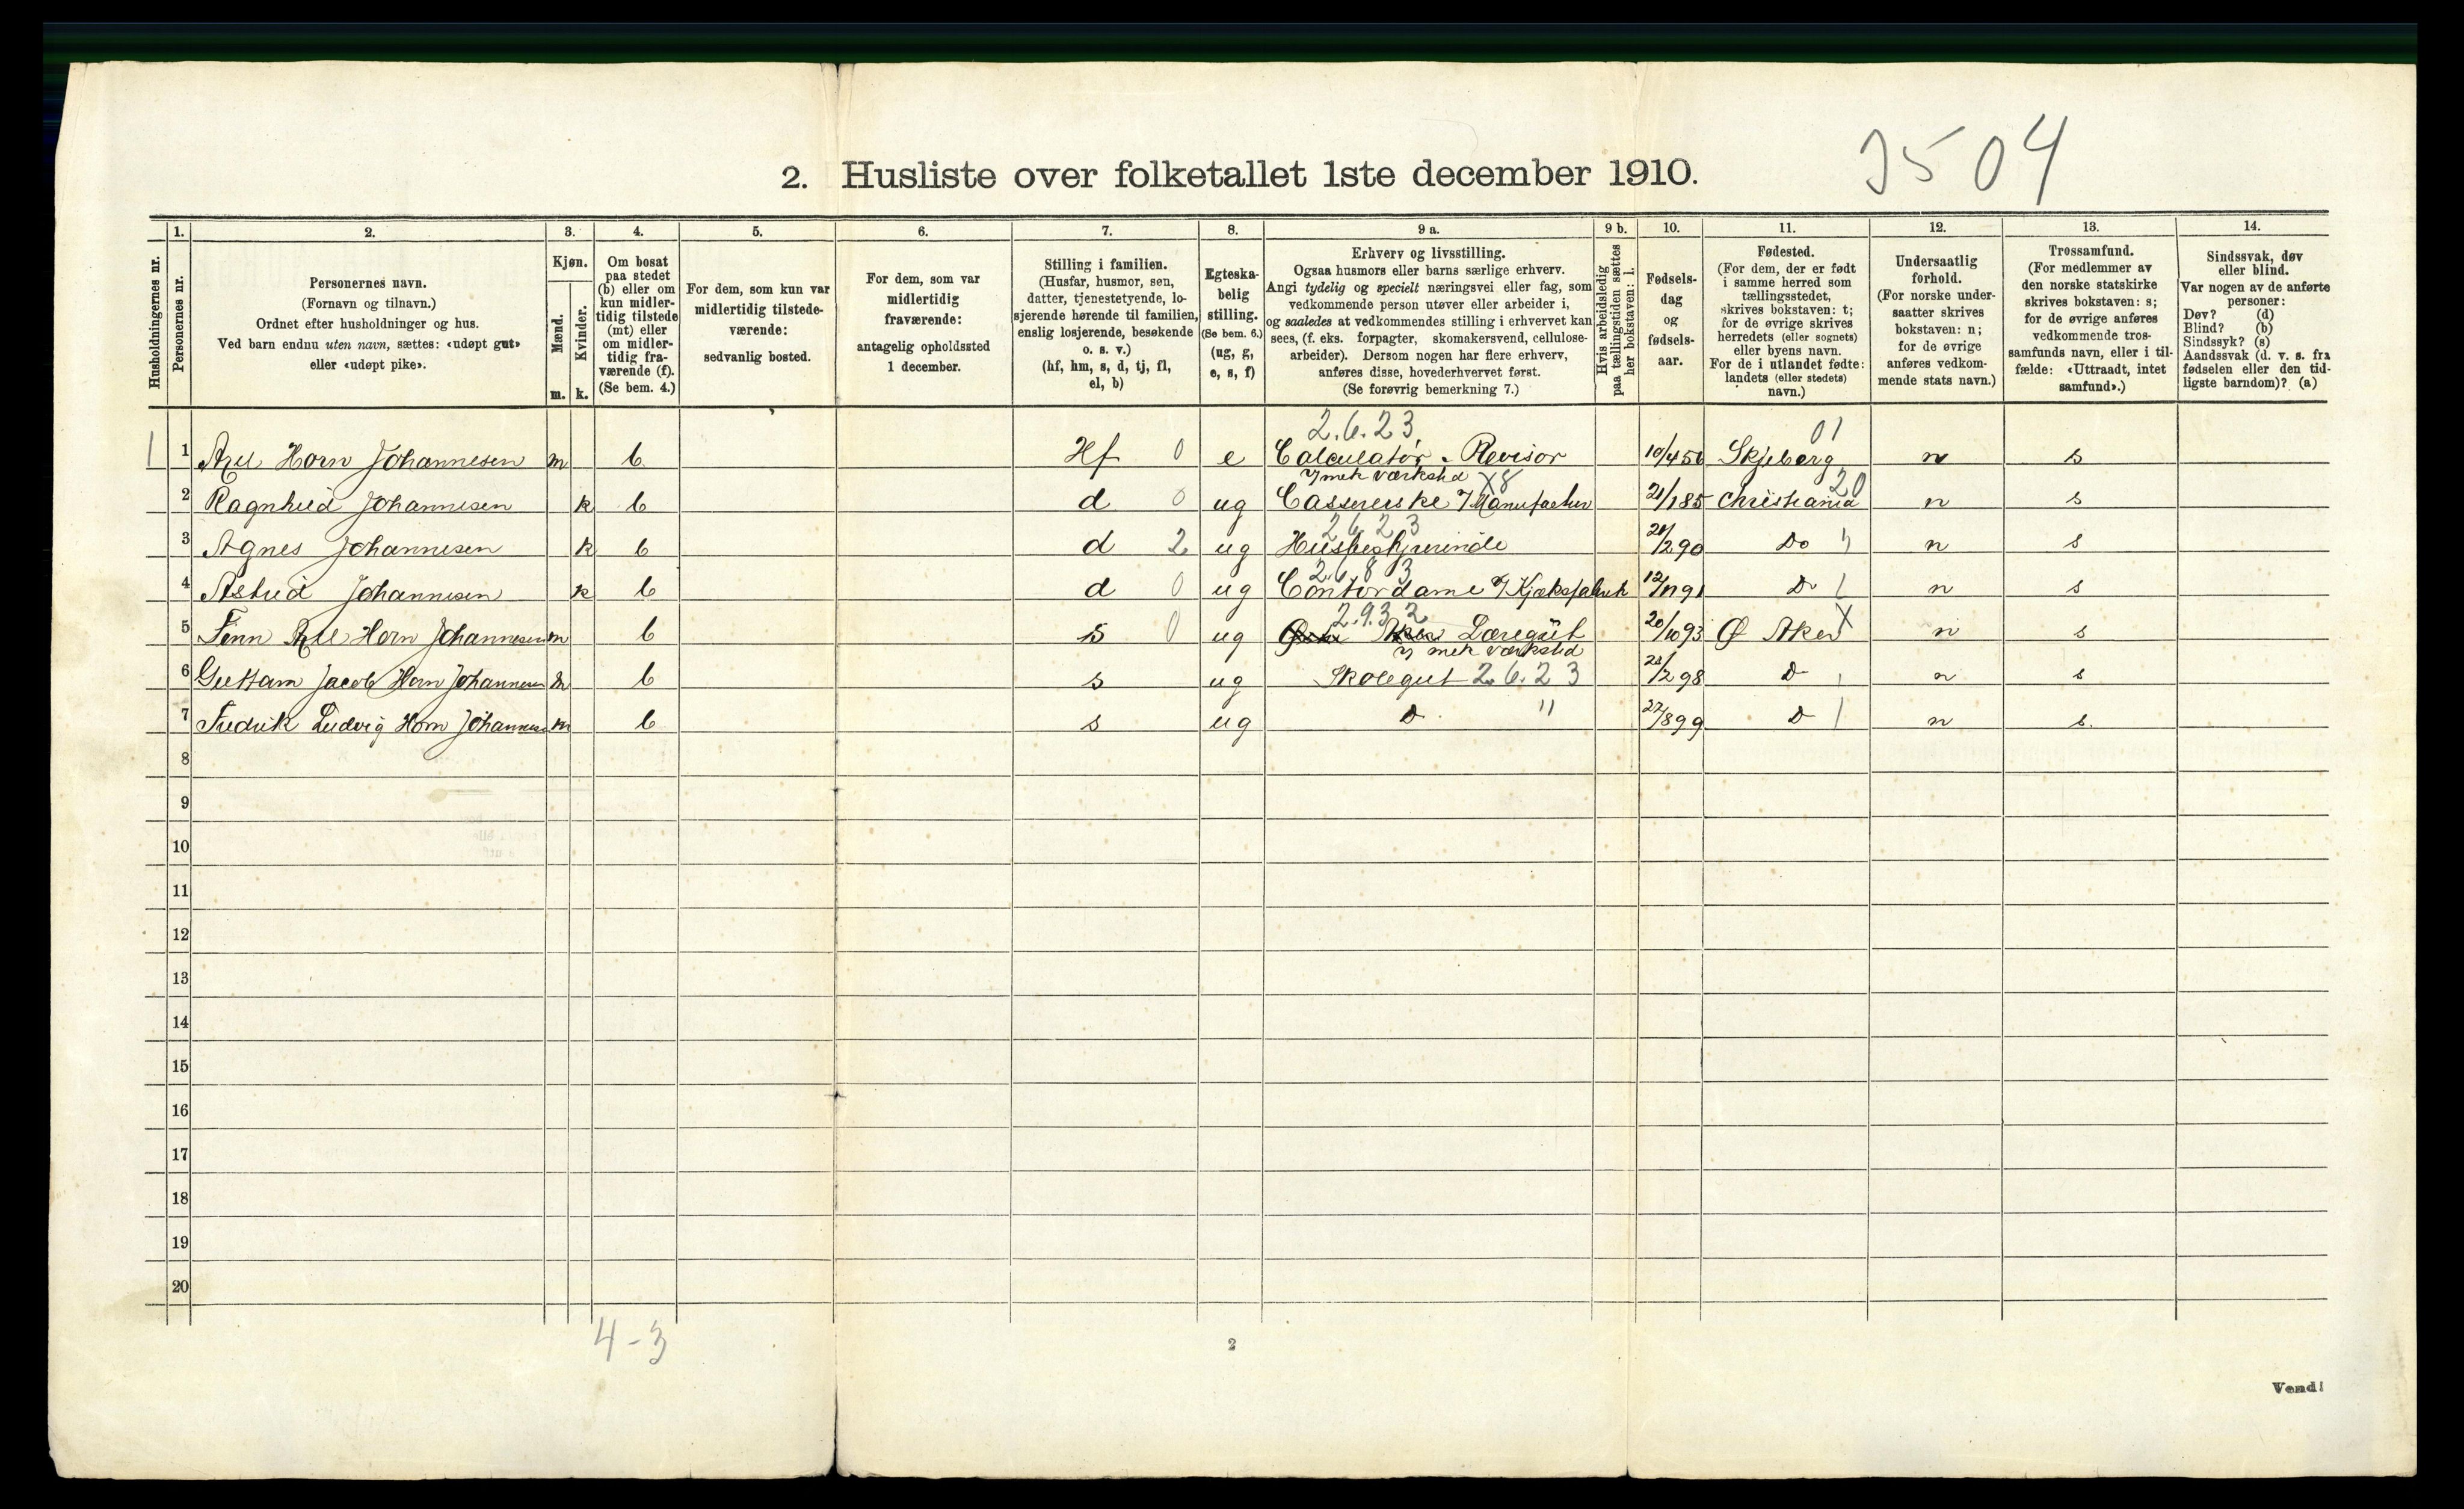 3504
2. Husliste over folketallet 1ste december 1910.
Husholdningernes nr.
1. Personernes nr.
2. Personernes navn.
(Fornavn og tilnavn.)
Ordnet efter husholdninger og hus.
Ved barn endnu uten navn, sættes: «udøpt gut»
eller «udøpt pike».
3. Kjøn.
Mænd. m.
Kvinder. k.
4. Om bosat
paa stedet
(b) eller om
kun midler-
tidig tilstede
(mt) eller
om midler-
tidig fra-
værende (f).
(Se bem. 4.)
5. For dem, som kun var
midlertidig tilstede-
værende:
sedvanlig bosted.
6. For dem, som var
midlertidig
fraværende:
antagelig opholdssted
1 december.
7. Stilling i familien.
(Husfar, husmor, søn,
datter, tjenestetyende, lo-
sjerende hørende til familien,
enslig losjerende, besøkende
o. s. v.)
(hf, hm, s, d, tj, fl,
el, b)
8. Egteska-
belig
stilling.
(Se bem. 6.)
(ug, g,
e, s, f)
9 a. Erhverv og livsstilling.
Ogsaa husmors eller barns særlige erhverv.
Angi tydelig og specielt næringsvei eller fag, som
vedkommende person utøver eller arbeider i,
og saaledes at vedkommendes stilling i erhvervet kan
sees, (f. eks. forpagter, skomakersvend, cellulose-
arbeider). Dersom nogen har flere erhverv,
anføres disse, hovederhvervet først.
(Se forøvrig bemerkning 7.)
9 b. Hvis arbeidsledig
paa tællingstiden sættes
her bokstaven: l.
10. Fødsels-
dag
og
fødsels-
aar.
11. Fødested.
(For dem, der er født
i samme herred som
tællingsstedet,
skrives bokstaven: t;
for de øvrige skrives
herredets (eller sognets)
eller byens navn.
For de i utlandet fødte:
landets (eller stedets)
navn.)
12. Undersaatlig
forhold.
(For norske under-
saatter skrives
bokstaven: n;
for de øvrige
anføres vedkom-
mende stats navn.)
13. Trossamfund.
(For medlemmer av
den norske statskirke
skrives bokstaven: s;
for de øvrige anføres
vedkommende tros-
samfunds navn, eller i til-
fælde: «Uttraadt, intet
samfund».)
14. Sindssvak, døv
eller blind.
Var nogen av de anførte
personer:
Døv? (d)
Blind? (b)
Sindssyk? (s)
Aandssvak (d. v. s. fra
fødselen eller den tid-
ligste barndom)? (a)
2.6.23 01
1 1 Axel Horn Johannesen m b Hf 0 e Calculatør. Revisor 10/4 56 Skjeberg n s
i/ mek værksted X8 20
2 Ragnhild Johannesen k b d 0 ug Cassererske i/ Manufactur 21/1 85 Christiania n s
2623
3 Agnes Johannesen k b d 2 ug Husbestyrerinde 2 90 Do n s
2.6 8 3
4 Astrid Johannesen k b d 0 ug Contordame i/ Kjæksfabrik 12/11 91 D n s
2.9.32 X
5 Finn Axel Horn Johannesen m b s 0 ug Læregut 20/10 93 Ø Aker n s
i/ mek værksted
6 Guttarm Jacob Horn Johannesen m b s ug Skolegut 2.6.23 2 98 D n s
7 Fredrik Ludvig Horn Johannesen m b s ug D " 27/8 99 D n s.
8
9
10
11
12
13
14
15
16
17
18
19
20
4-3
2
Vend!